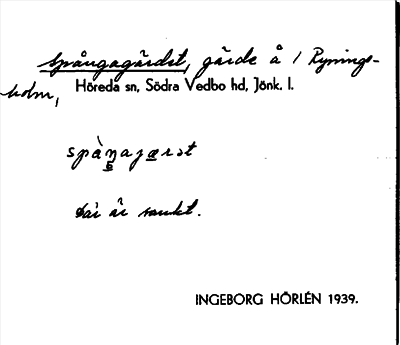 Spångagärdet, gärde å 1 Rynings-
holm,
Höreda sn, Södra Vedbo hd, Jönk. l.
spàŋaɟærət
där är sankt.
INGEBORG HÖRLÉN 1939.